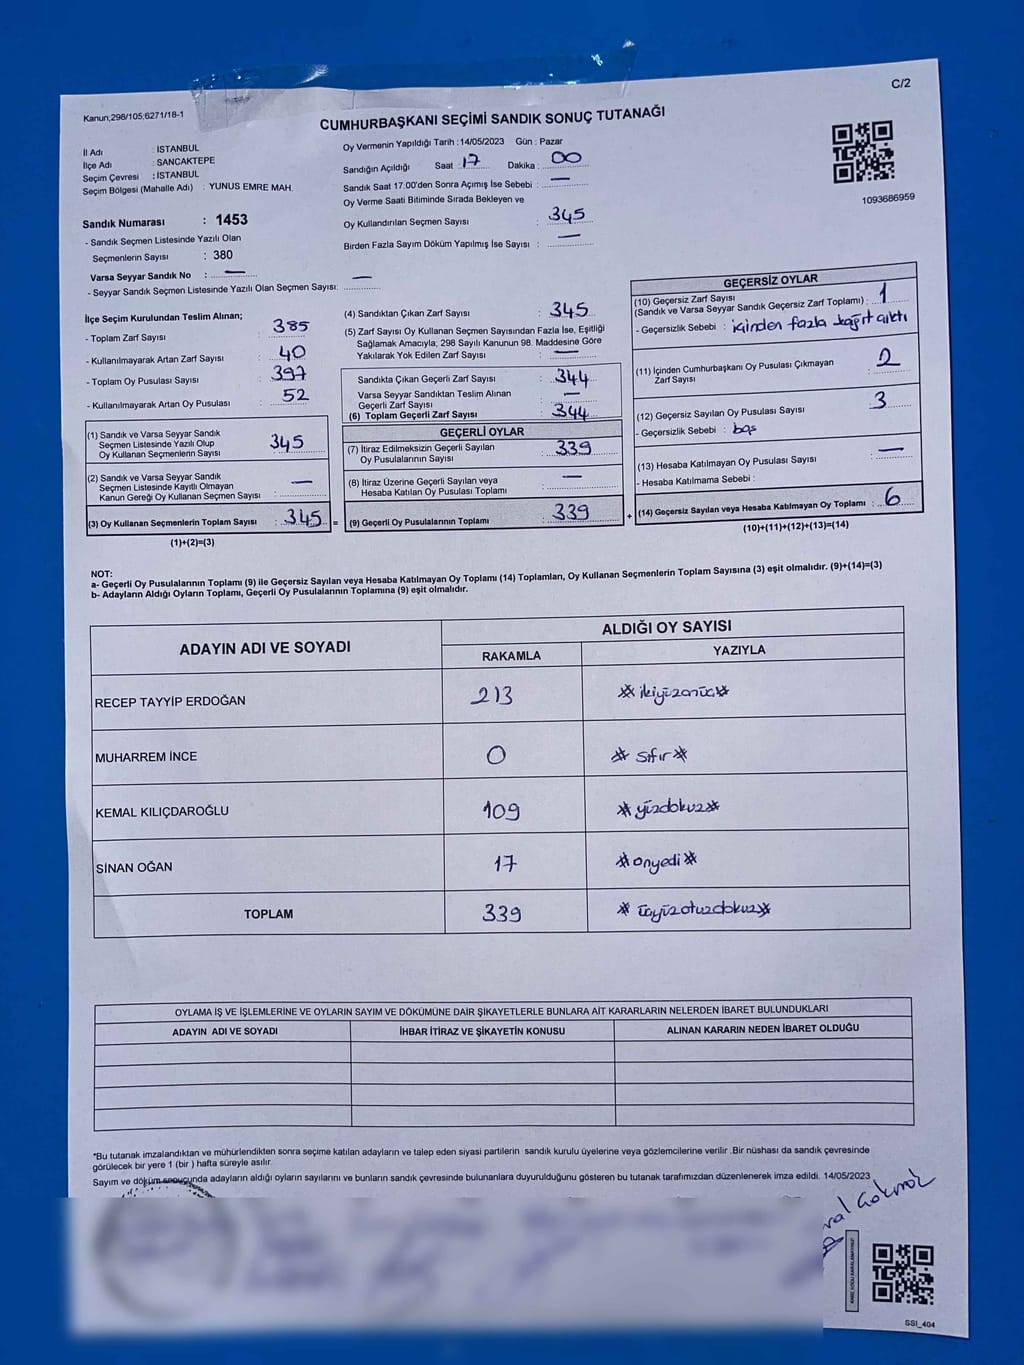 C/2
Kanun,298/105,6271/18-1
CUMHURBAŞKANI SEÇİMİ SANDIK SONUÇ TUTANAĞI
İl Adı : ISTANBUL
İlçe Adı : SANCAKTEPE
Seçim Çevresi : ISTANBUL
Seçim Bölgesi (Mahalle Adı) : YUNUS EMRE MAH.
Sandık Numarası : 1453
- Sandık Seçmen Listesinde Yazılı Olan
Seçmenlerin Sayısı : 380
Varsa Seyyar Sandık No : —
- Seyyar Sandık Seçmen Listesinde Yazılı Olan Seçmen Sayısı: —
Oy Vermenin Yapıldığı Tarih :14/05/2023 Gün : Pazar
Sandığın Açıldığı Saat : 17 Dakika : 00
Sandık Saat 17:00'den Sonra Açımış İse Sebebi : —
Oy Verme Saati Bitiminde Sırada Bekleyen ve
Oy Kullandırılan Seçmen Sayısı : 345
Birden Fazla Sayım Döküm Yapılmış İse Sayısı : —
1093686959
İlçe Seçim Kurulundan Teslim Alınan;
- Toplam Zarf Sayısı : 385
- Kullanılmayarak Artan Zarf Sayısı : 40
- Toplam Oy Pusulası Sayısı : 397
- Kullanılmayarak Artan Oy Pusulası : 52
(1) Sandık ve Varsa Seyyar Sandık
Seçmen Listesinde Yazılı Olup
Oy Kullanan Seçmenlerin Sayısı 345
(2) Sandık ve Varsa Seyyar Sandık
Seçmen Listesinde Kayıtlı Olmayan
Kanun Gereği Oy Kullanan Seçmen Sayısı : —
(3) Oy Kullanan Seçmenlerin Toplam Sayısı : 345 =
(1)+(2)=(3)
(4) Sandıktan Çıkan Zarf Sayısı : 345
(5) Zarf Sayısı Oy Kullanan Seçmen Sayısından Fazla İse, Eşitliği
Sağlamak Amacıyla; 298 Sayılı Kanunun 98. Maddesine Göre
Yakılarak Yok Edilen Zarf Sayısı : —
Sandıkta Çıkan Geçerli Zarf Sayısı : 344
Varsa Seyyar Sandıktan Teslim Alınan
Geçerli Zarf Sayısı : —
(6) Toplam Geçerli Zarf Sayısı : 344
GEÇERLİ OYLAR
(7) İtiraz Edilmeksizin Geçerli Sayılan
Oy Pusulalarının Sayısı : 339
(8) İtiraz Üzerine Geçerli Sayılan veya
Hesaba Katılan Oy Pusulası Toplamı : —
(9) Geçerli Oy Pusulalarının Toplamı : 339 +
GEÇERSİZ OYLAR
(10) Geçersiz Zarf Sayısı
(Sandık ve Varsa Seyyar Sandık Geçersiz Zarf Toplamı) : 1
- Geçersizlik Sebebi : içinden fazla kağıt çıktı
(11) İçinden Cumhurbaşkanı Oy Pusulası Çıkmayan
Zarf Sayısı : 2
(12) Geçersiz Sayılan Oy Pusulası Sayısı : 3
- Geçersizlik Sebebi : boş
(13) Hesaba Katılmayan Oy Pusulası Sayısı : —
- Hesaba Katılmama Sebebi :
(14) Geçersiz Sayılan veya Hesaba Katılmayan Oy Toplamı : 6
(10)+(11)+(12)+(13)=(14)
NOT:
a- Geçerli Oy Pusulalarının Toplamı (9) ile Geçersiz Sayılan veya Hesaba Katılmayan Oy Toplamı (14) Toplamları, Oy Kullanan Seçmenlerin Toplam Sayısına (3) eşit olmalıdır. (9)+(14)=(3)
b- Adayların Aldığı Oyların Toplamı, Geçerli Oy Pusulalarının Toplamına (9) eşit olmalıdır.
ADAYIN ADI VE SOYADI
ALDIĞI OY SAYISI
RAKAMLA YAZIYLA
RECEP TAYYİP ERDOĞAN 213 *ikiyüzonüç*
MUHARREM İNCE 0 * sıfır *
KEMAL KILIÇDAROĞLU 109 *yüzdokuz*
SİNAN OĞAN 17 *onyedi*
TOPLAM 339 * üçyüzotuzdokuz*
OYLAMA İŞ VE İŞLEMLERİNE VE OYLARIN SAYIM VE DÖKÜMÜNE DAİR ŞİKAYETLERLE BUNLARA AİT KARARLARIN NELERDEN İBARET BULUNDUKLARI
ADAYIN ADI VE SOYADI İHBAR İTİRAZ VE ŞİKAYETİN KONUSU ALINAN KARARIN NEDEN İBARET OLDUĞU
*Bu tutanak imzalandıktan ve mühürlendikten sonra seçime katılan adayların ve talep eden siyasi partilerin sandık kurulu üyelerine veya gözlemcilerine verilir .Bir nüshası da sandık çevresinde
görülecek bir yere 1 (bir ) hafta süreyle asılır.
Sayım ve döküm sonucunda adayların aldığı oyların sayılarını ve bunların sandık çevresinde bulunanlara duyurulduğunu gösteren bu tutanak tarafımızdan düzenlenerek imza edildi. 14/05/2023
SSI_404